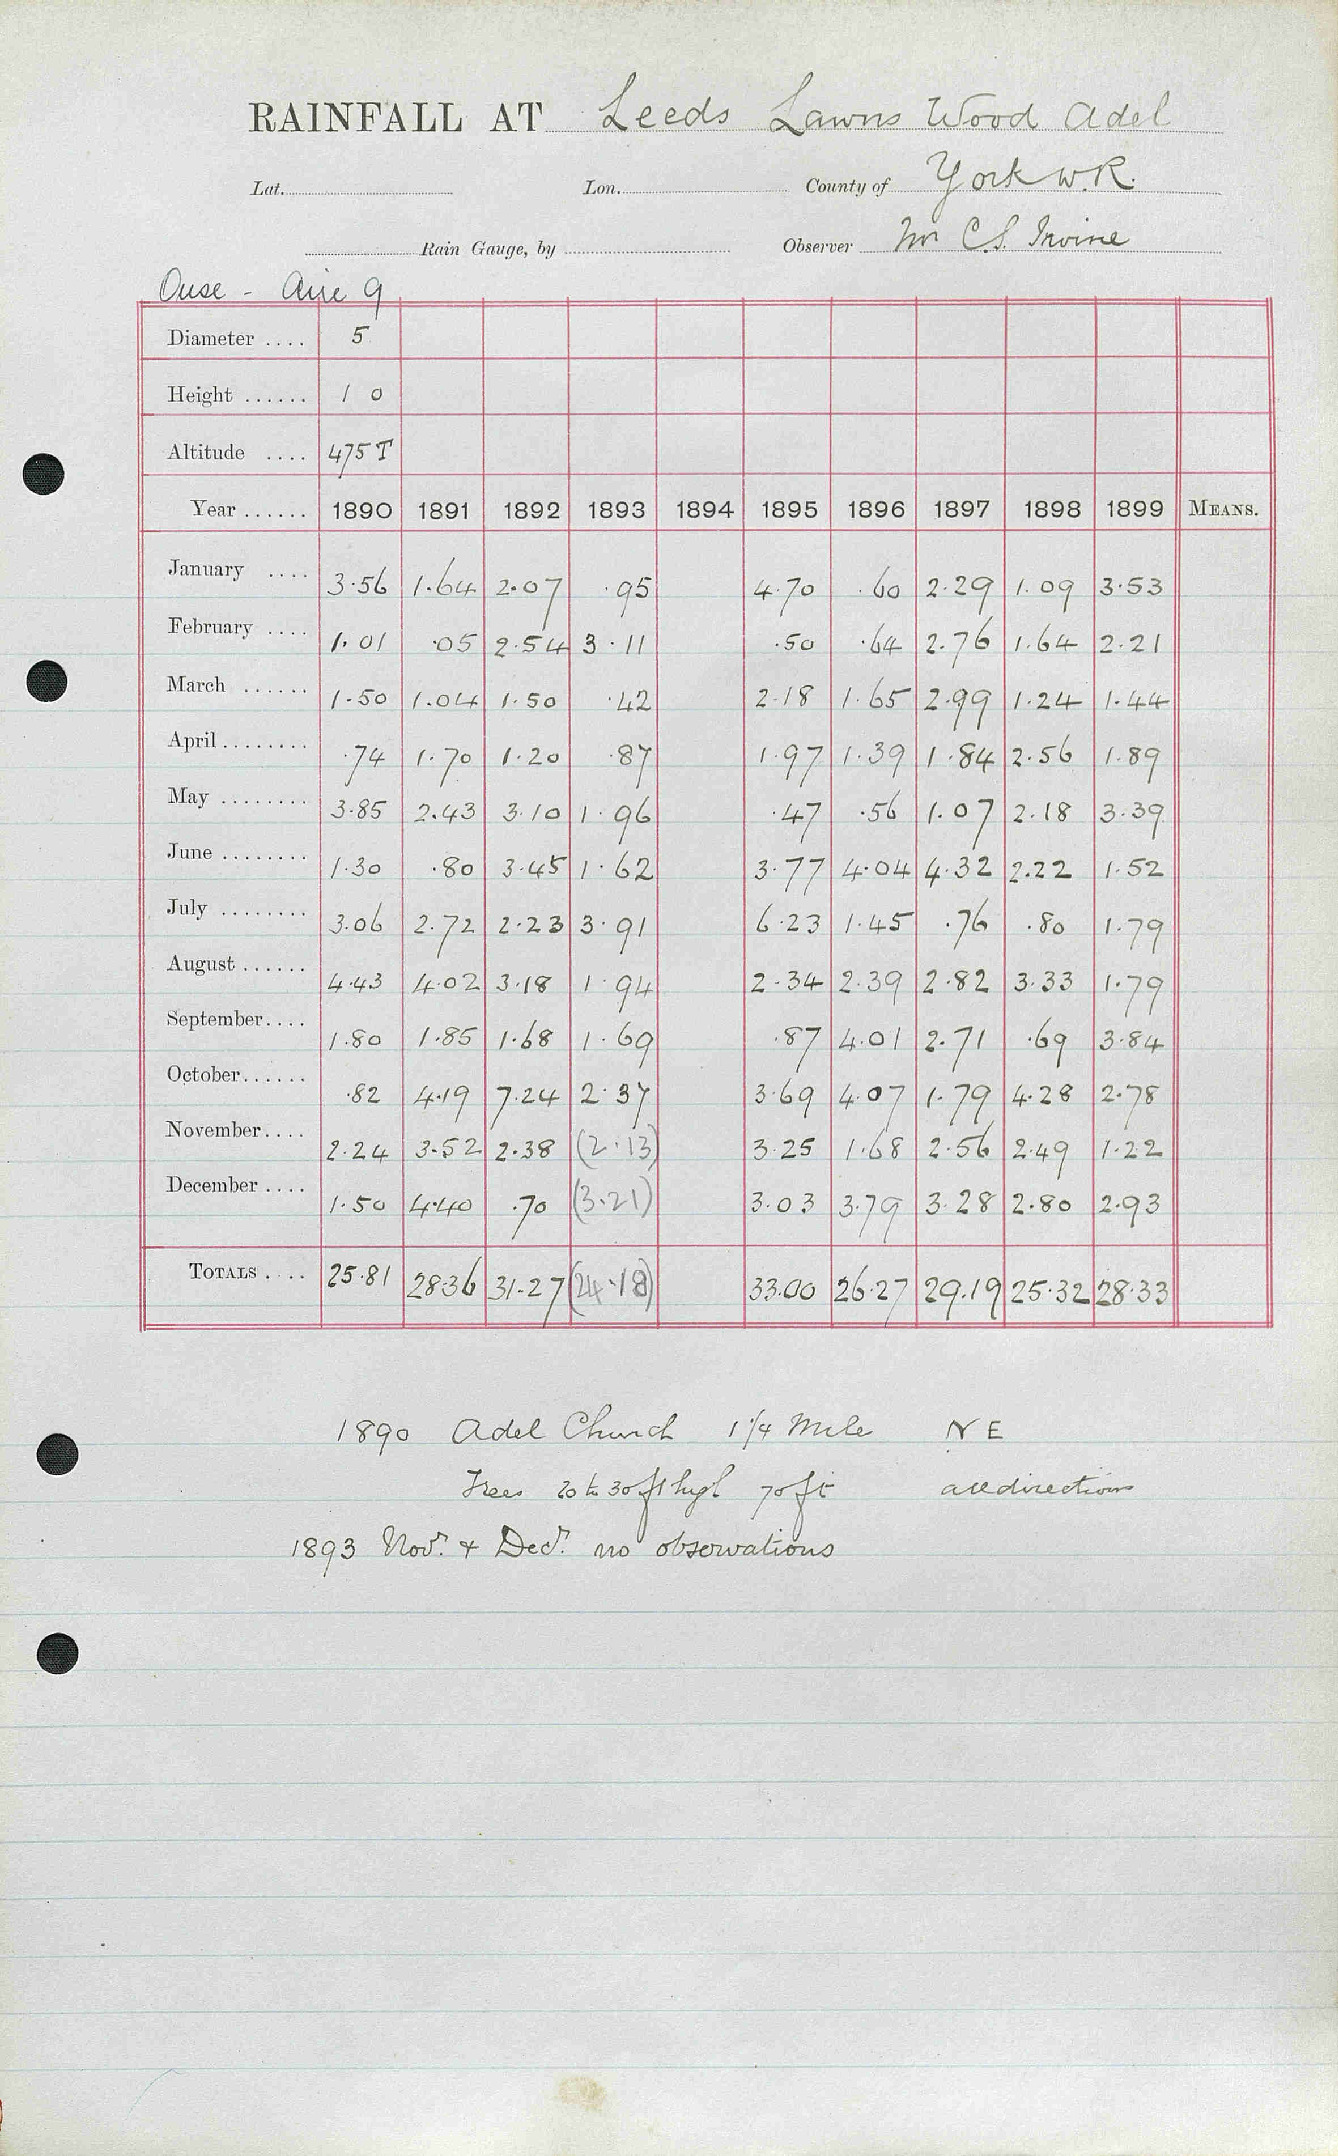 RAINFALL AT Leeds Lawns Wood Adel
Lat. Lon. County of York W.R.
Rain Gauge, by Observer Mr C.S. Irvine
Ouse - Aire 9
Diameter .... 5
Height ...... 1 0
Altitude .... 475 T
Year ...... 1890 1891 1892 1893 1894 1895 1896 1897 1898 1899 MEANS.
January .... 3.56 1.64 2.07 .95 4.70 .60 2.29 1.09 3.53
February .... 1.01 .05 2.54 3.11 .50 .64 2.76 1.64 2.21
March ...... 1.50 1.04 1.50 .42 2.18 1.65 2.99 1.24 1.44
April ........ .74 1.70 1.20 .87 1.97 1.39 1.84 2.56 1.89
May ........ 3.85 2.43 3.10 1.96 .47 .56 1.07 2.18 3.39
June ........ 1.30 .80 3.45 1.62 3.77 4.04 4.32 2.22 1.52
July ........ 3.06 2.72 2.23 3.91 6.23 1.45 .76 .80 1.79
August ...... 4.43 4.02 3.18 1.94 2.34 2.39 2.82 3.33 1.79
September .... 1.80 1.85 1.68 1.69 .87 4.01 2.71 .69 3.84
October ...... .82 4.19 7.24 2.37 3.69 4.07 1.79 4.28 2.78
November .... 2.24 3.52 2.38 (2.13) 3.25 1.68 2.56 2.49 1.22
December .... 1.50 4.40 .70 (3.21) 3.03 3.79 3.28 2.80 2.93
TOTALS .... 25.81 28.36 31.27 (24.18) 33.00 26.27 29.19 25.32 28.33
1890 Adel Church 1 1/4 Mile NE
Trees 20 to 30 ft high 70 ft all directions
1893 Novr. & Decr. no observations